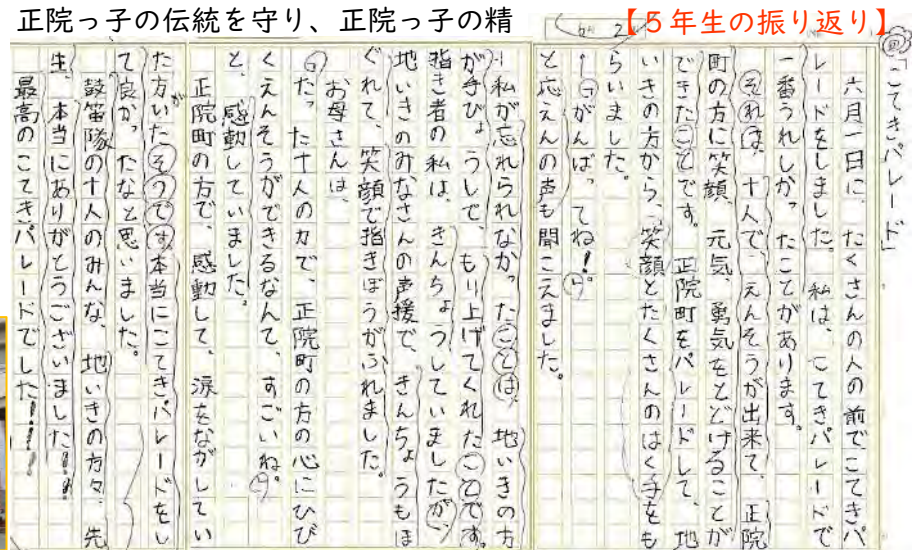 正院っ子の伝統を守り、正院っ子の精
【5年生の振り返り】
「こてきパレード」
六月一日に、たくさんの人の前で、こてきパ
レードをしました。私は、こてきパレードで
一番うれしかったことがあります。
それは、十人で、えんそうが出来て、正院
町の方に笑顔、元気、勇気をとどけることが
できたことです。正院町をパレードして、地
いきの方から、笑顔とたくさんのはく手をも
らいました。
「がんばってね!」
と応えんの声も聞こえました。
私が忘れられなかったことは、地いきの方
が手びょうしで、もり上げてくれたことです。
指き者の私は、きんちょうしていましたが、
地いきのみなさんの声援で、きんちょうもほ
ぐれて、笑顔で指きぼうがふれました。
お母さんは、
「たった十人の力で、正院町の方の心にひび
くえんそうができるなんて、すごいね。」
と、感動していました。
正院町の方で、感動して、涙をながしてい
た方がいたそうです。本当にこてきパレードをし
て良かったなと思いました。
鼓笛隊の十人のみんな、地いきの方々、先
生、本当にありがとうございました!!!
最高のこてきパレードでした!!!!